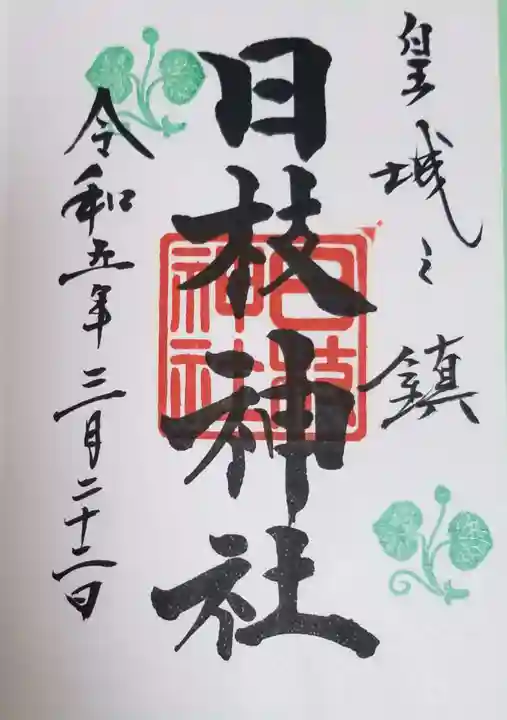 皇城之鎮
日枝神社
日枝神社
令和五年三月二十二日